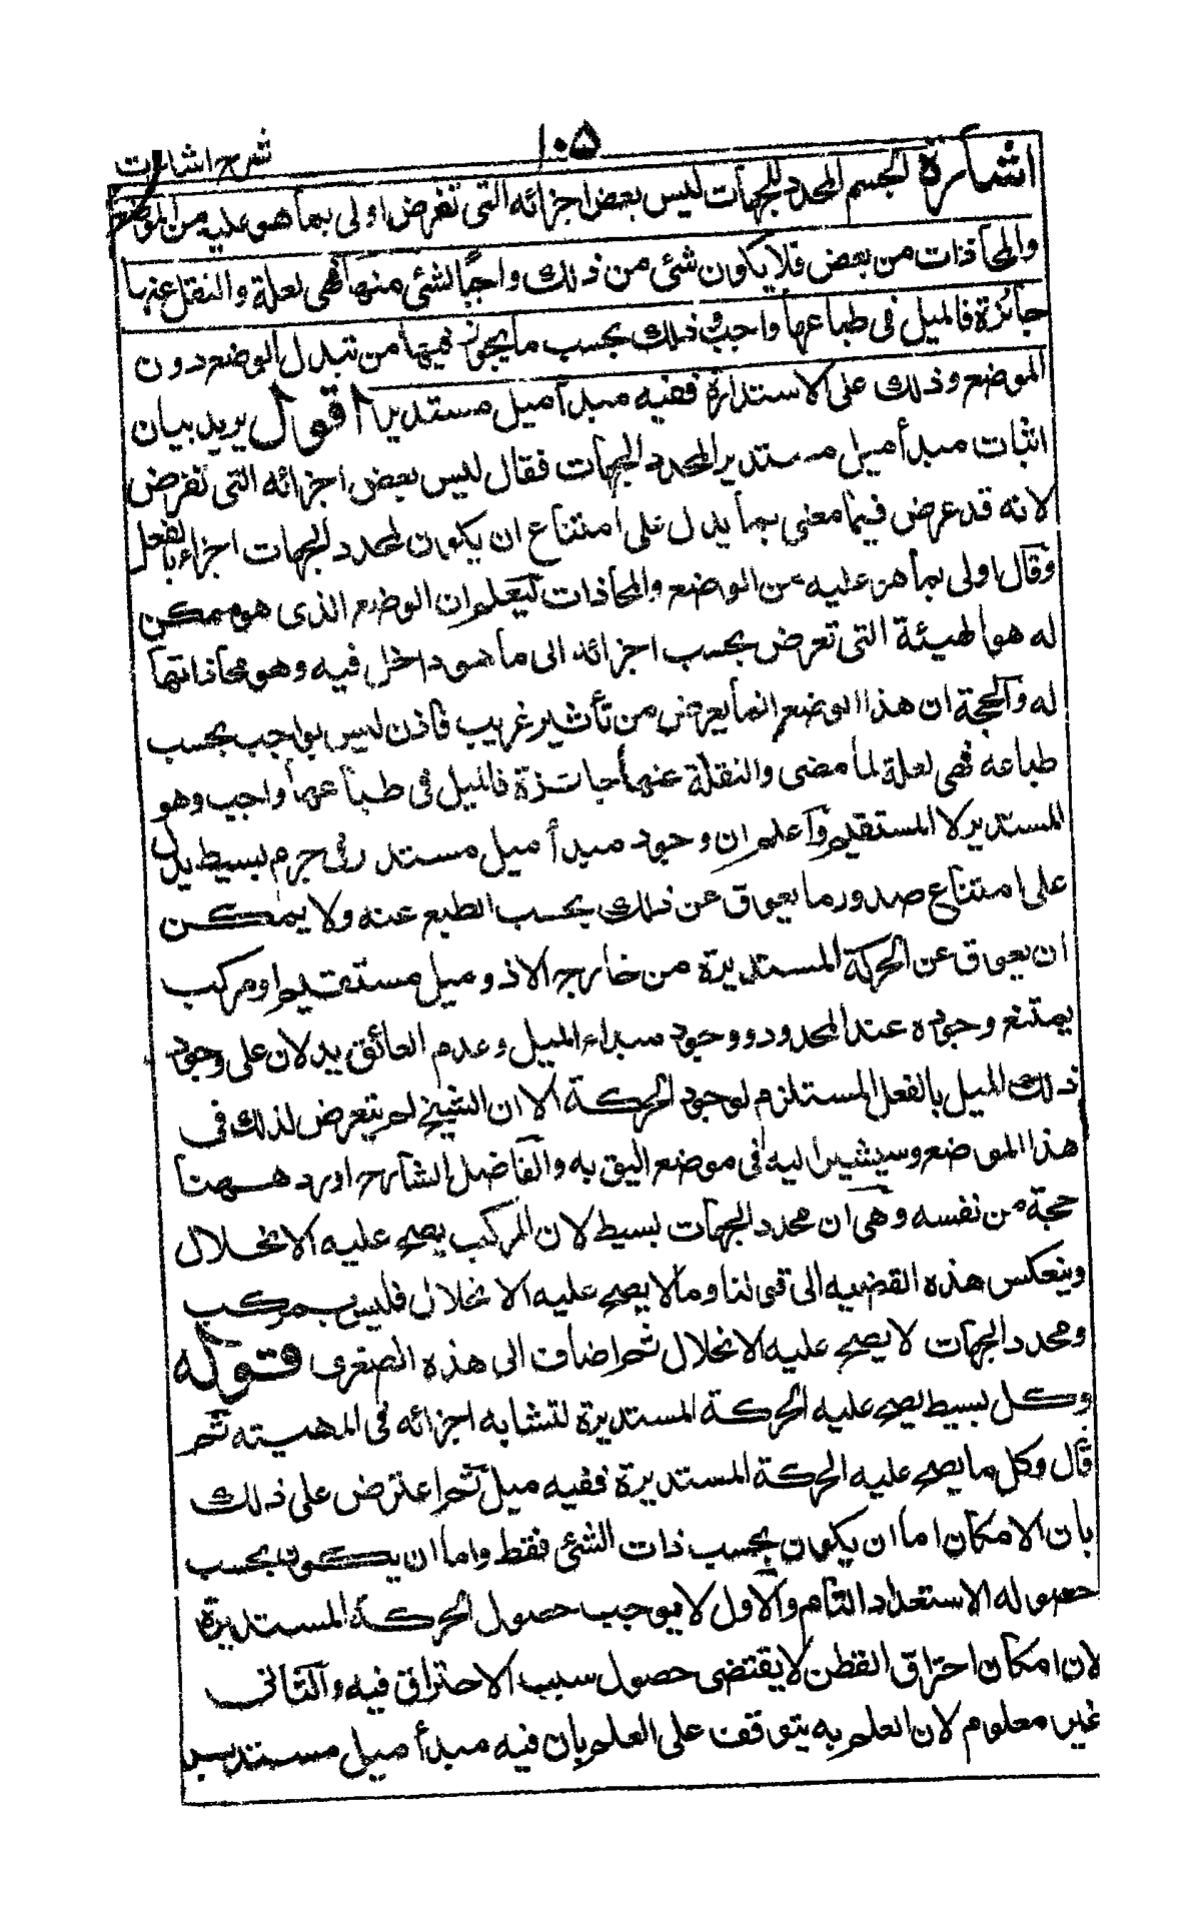 شرح اشارات
١٠٥
اشارة الجسم المحدد للجهات ليس بعض اجزائه التى تفرض اولى بما هو عليه من الوضع
والمحاذات من بعض فلا يكون شئ من ذلك واجبًا لشئ منها فهى لعلة والنقل عنها
جائزة فالميل فى طباعها واجب وذلك بحسب ما يجوز فيها من تبدل الوضع دون
الموضع وذلك على الاستدارة ففيه مبدأ ميل مستدير اقول يريد بيان
اثبات مبدأ ميل مستدير لمحدد الجهات فقال ليس بعض اجزائه التى تفرض
لانه قد عرض فيما معنى بما يدل على امتناع ان يكون لمحدد الجهات اجزاء بالفعل
وقال اولى بما هو عليه من الوضع والمحاذات ليعلم ان الوضع الذى هو ممكن
له هو الهيئة التى تعرض بحسب اجزائه الى ما هو داخل فيه وهو محاذاتها
له والحجة ان هذا الوضع انما يعرض من تأثير غريب فاذن ليس بواجب بحسب
طباعه فهى لعلة لما مضى والنقلة عنها جائزة فالميل فى طباعها واجب وهو
المستدير لا المستقيم واعلم ان وجود مبدأ ميل مستدير فى جرم بسيط يدل
على امتناع صدور ما يعوق عن ذلك بحسب الطبع عنه ولا يمكن
ان يعوق عن الحركة المستديرة من خارج الا ذو ميل مستقيم او مركب
يمتنع وجوده عند المحدد ووجود مبداء الميل وعدم العائق يدلان على وجود
ذلك الميل بالفعل المستلزم لوجود الحركة الا ان الشيخ لم يتعرض لذلك فى
هذا الموضع وسيشير اليه فى موضع اليق به والفاضل الشارح اورد ههنا
حجة من نفسه وهى ان محدد الجهات بسيط لان المركب يصح عليه الانحلال
وينعكس هذه القضيه الى قولنا وما لا يصح عليه الانحلال فليس بمركب
ومحدد الجهات لا يصح عليه الانحلال ثم اضاف الى هذه الصغرى قوله
وكل بسيط يصح عليه الحركة المستديرة لتشابه اجزائه فى المهيته ثم
قال وكل ما يصح عليه الحركة المستديرة ففيه ميل ثم اعترض على ذلك
بان الامكان اما ان يكون بحسب ذات الشئ فقط واما ان يكون بحسب
حصوله الاستعداد التام والاول لا يوجب حصول الحركة المستديرة
لان امكان احتراق القطن لا يقتضى حصول سبب الاحتراق فيه والثانى
غير معلوم لان العلم به يتوقف على العلم بان فيه مبدأ ميل مستدير